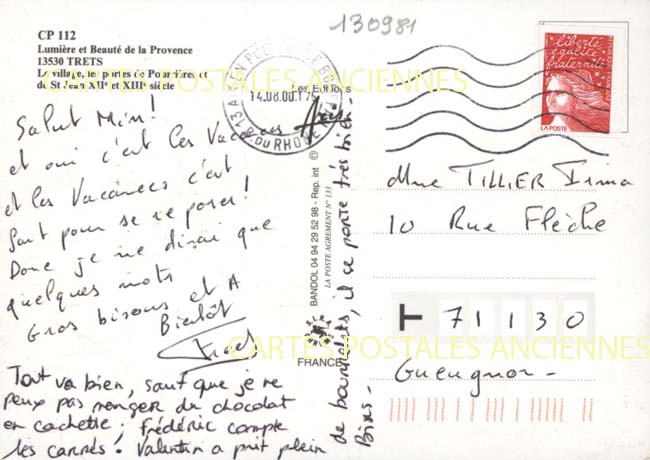 130981
CP 112
Lumière et Beauté de la Provence
13530 TRETS
Le village, les portes de Pourrières et
de St Jean XIIe et XIIIe siècle
Salut Mimi!
et oui c'est les Vacances
et les Vacances c'est
fait pour se reposer!
Donc je ne dirai que
quelques mots
Gros bisous et A
Bientôt
Fred
Tout va bien, sauf que je ne
peux pas manger du chocolat
en cachette: Frédéric compte
les carrés! Valentin a prit plein
de bourrelets, il se porte très bien.
Bises.
Les Editions
© BANDOL 04 94 29 52 98 - Rep. int
LA POSTE AGREMENT N° 133
FRANCE
14.08.00
BOUCHES DU RHONE
liberté
égalité
fraternité
LA POSTE
Mme TILLIER Irma
10 Rue Flèche
71130
Gueugnon
CARTES POSTALES ANCIENNES
CARTES POSTALES ANCIENNES